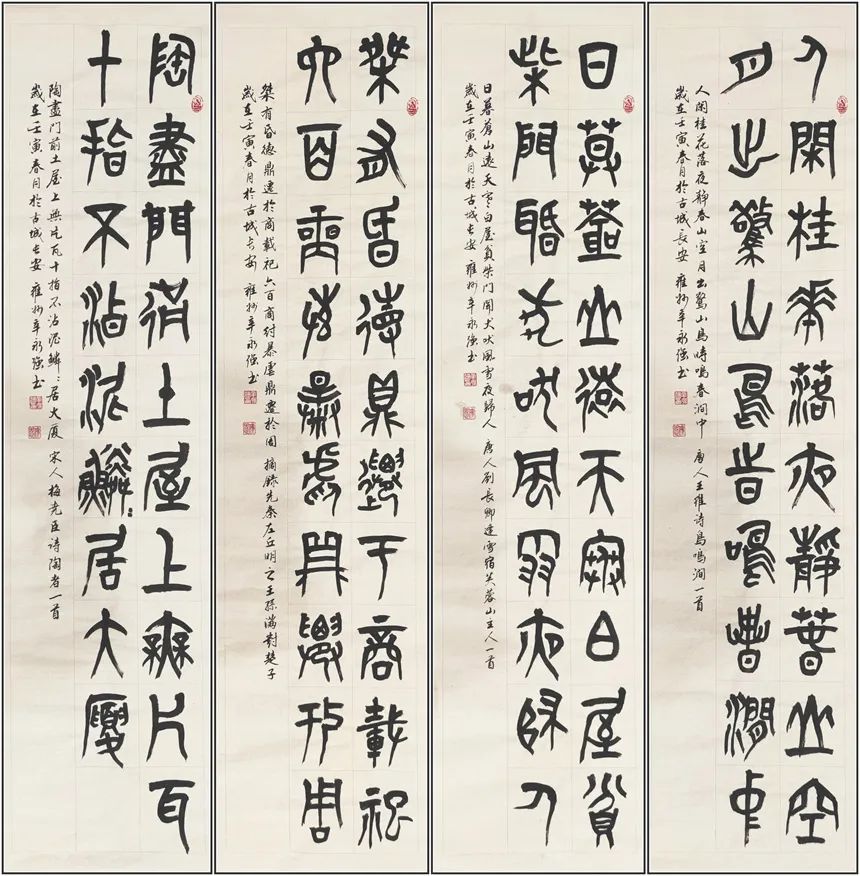 人閑桂花落夜靜春山空
月出驚山鳥時鳴春澗中
人閑桂花落夜靜春山空月出驚山鳥時鳴春澗中 唐人王維詩鳥鳴澗一首
歲在壬寅春月於古城長安 雍州辛永強書
日暮蒼山遠天寒白屋貧
柴門聞犬吠風雪夜歸人
日暮蒼山遠天寒白屋貧柴門聞犬吠風雪夜歸人 唐人劉長卿逢雪宿芙蓉山主人一首
歲在壬寅春月於古城長安 雍州辛永強書
桀有昏德鼎遷于商載祀
六百商紂暴虐鼎遷於周
桀有昏德鼎遷於商載祀六百商紂暴虐鼎遷於周 摘錄先秦左丘明之王孫滿對楚子
歲在壬寅春月於古城長安 雍州辛永強書
陶盡門前土屋上無片瓦
十指不沾泥鱗:居大廈
陶盡門前土屋上無片瓦十指不沾泥鱗:居大廈 宋人梅堯臣詩陶者一首
歲在壬寅春月於古城長安 雍州辛永強書